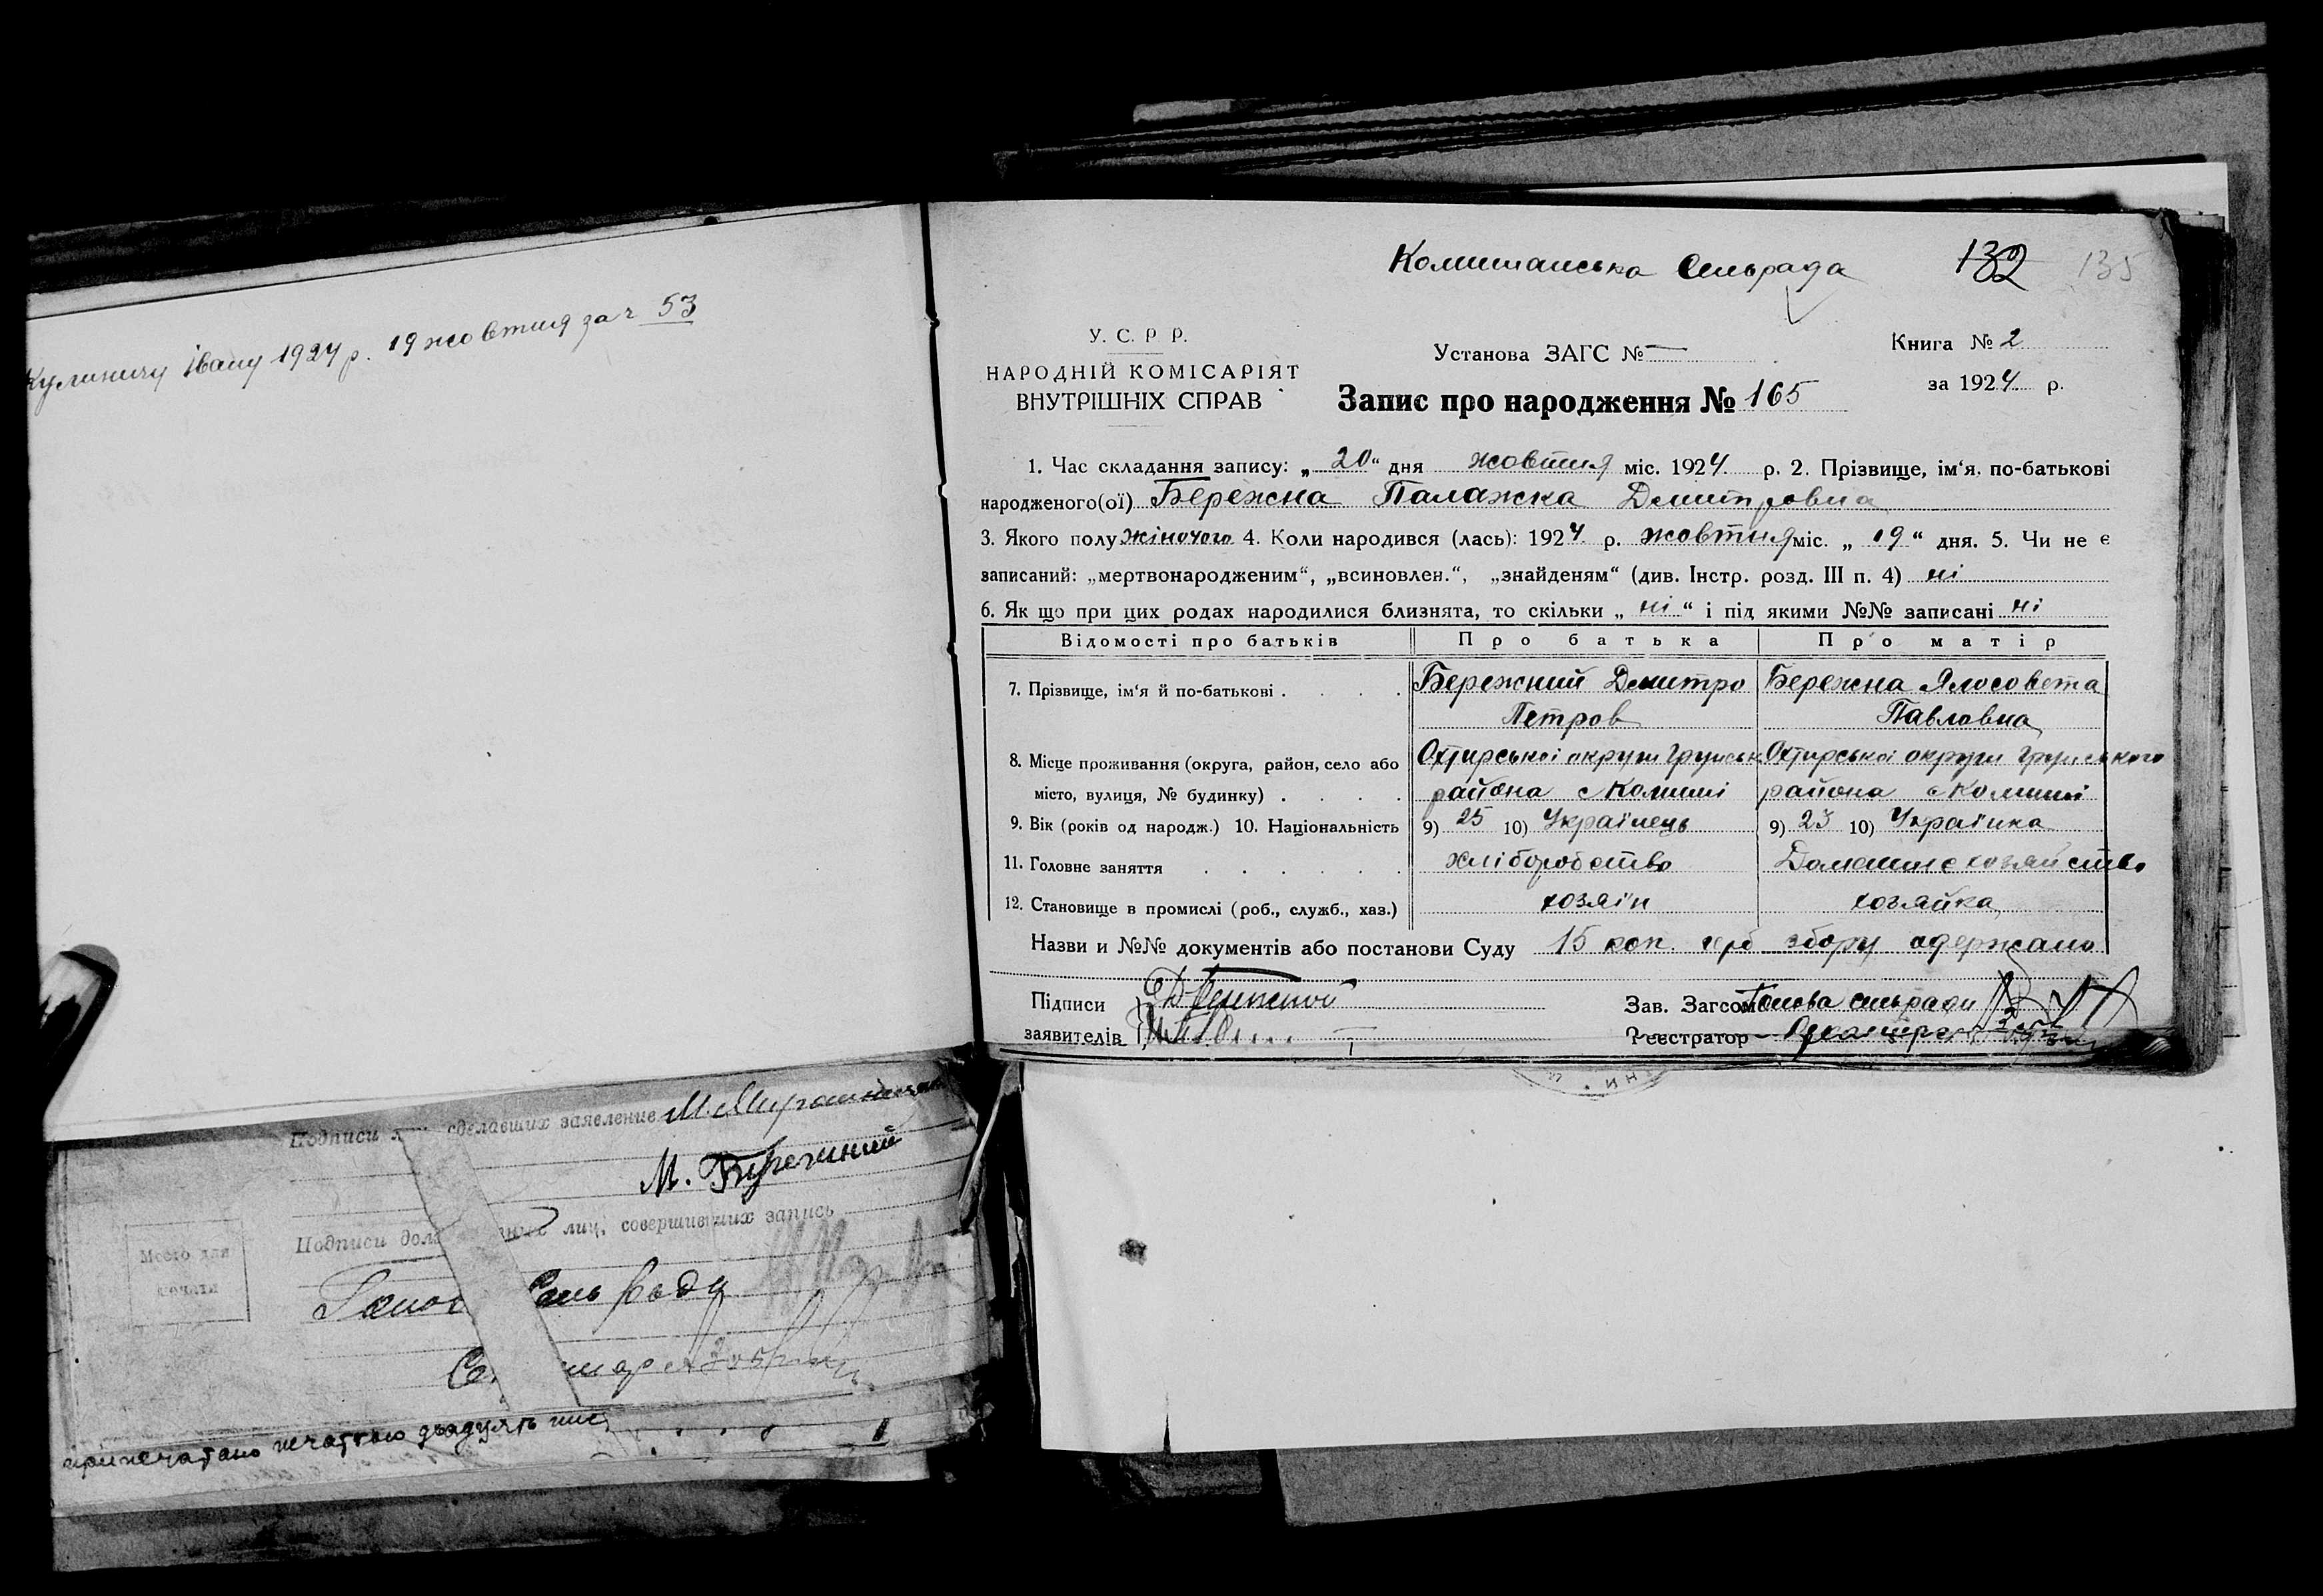 Кулиничу Івану 1924 р. 19 жовтня за ч 53
Подписи сделавших заявление М. Мирошниченко
М. Бережний
Подписи лиц, совершивших запись
Место для
печати
Голов Сель ради
припечатано печаткою двадцять
Комишанська Сельрада 132 135
У. С. Р Р.
НАРОДНІЙ КОМІСАРІЯТ
ВНУТРІШНІХ СПРАВ
Установа ЗАГС № —
Запис про народження № 165
Книга № 2
за 1924 р.
1. Час складання запису: „ 20 “ дня жовтня міс. 1924 р. 2. Прізвище, ім‘я. по-батькові
народженого(ої) Бережна Палажка Дмитровна
3. Якого полу жіночого 4. Коли народився (лась): 1924 р. жовтня міс. „ 19 “ дня. 5. Чи не є
записаний: „мертвонародженим“, „всиновлен.“, „знайденям“ (див. Інстр. розд. III п. 4) ні
6. Як що при цих родах народилися близнята, то скільки „ ні “ і під якими №№ записані ні
Відомості про батьків Про батька Про матір
7. Прізвище, ім‘я й по-батькові . . . . Бережний Дмитро Бережна Ялосовета
Петров Павловна
8. Місце проживання (округа, район, село або Охтирської округи Грунськ. Охтирської округи Грунського
місто, вулиця, № будинку) . . . . района с Комиші района с Комиші
9. Вік (років од народж.) 10. Національність 9) 25 10) Українець 9) 23 10) Українка
11. Головне заняття . . . . . . хліборобство Домашнє хозяйство
12. Становище в промислі (роб., служб., хаз.) хозяїн хозяйка
Назви и №№ документів або постанови Суду 15 коп. герб збору одержано
Підписи Д Бережной Зав. Загсом Голова сельради
заявителів Реєстратор Секретарь